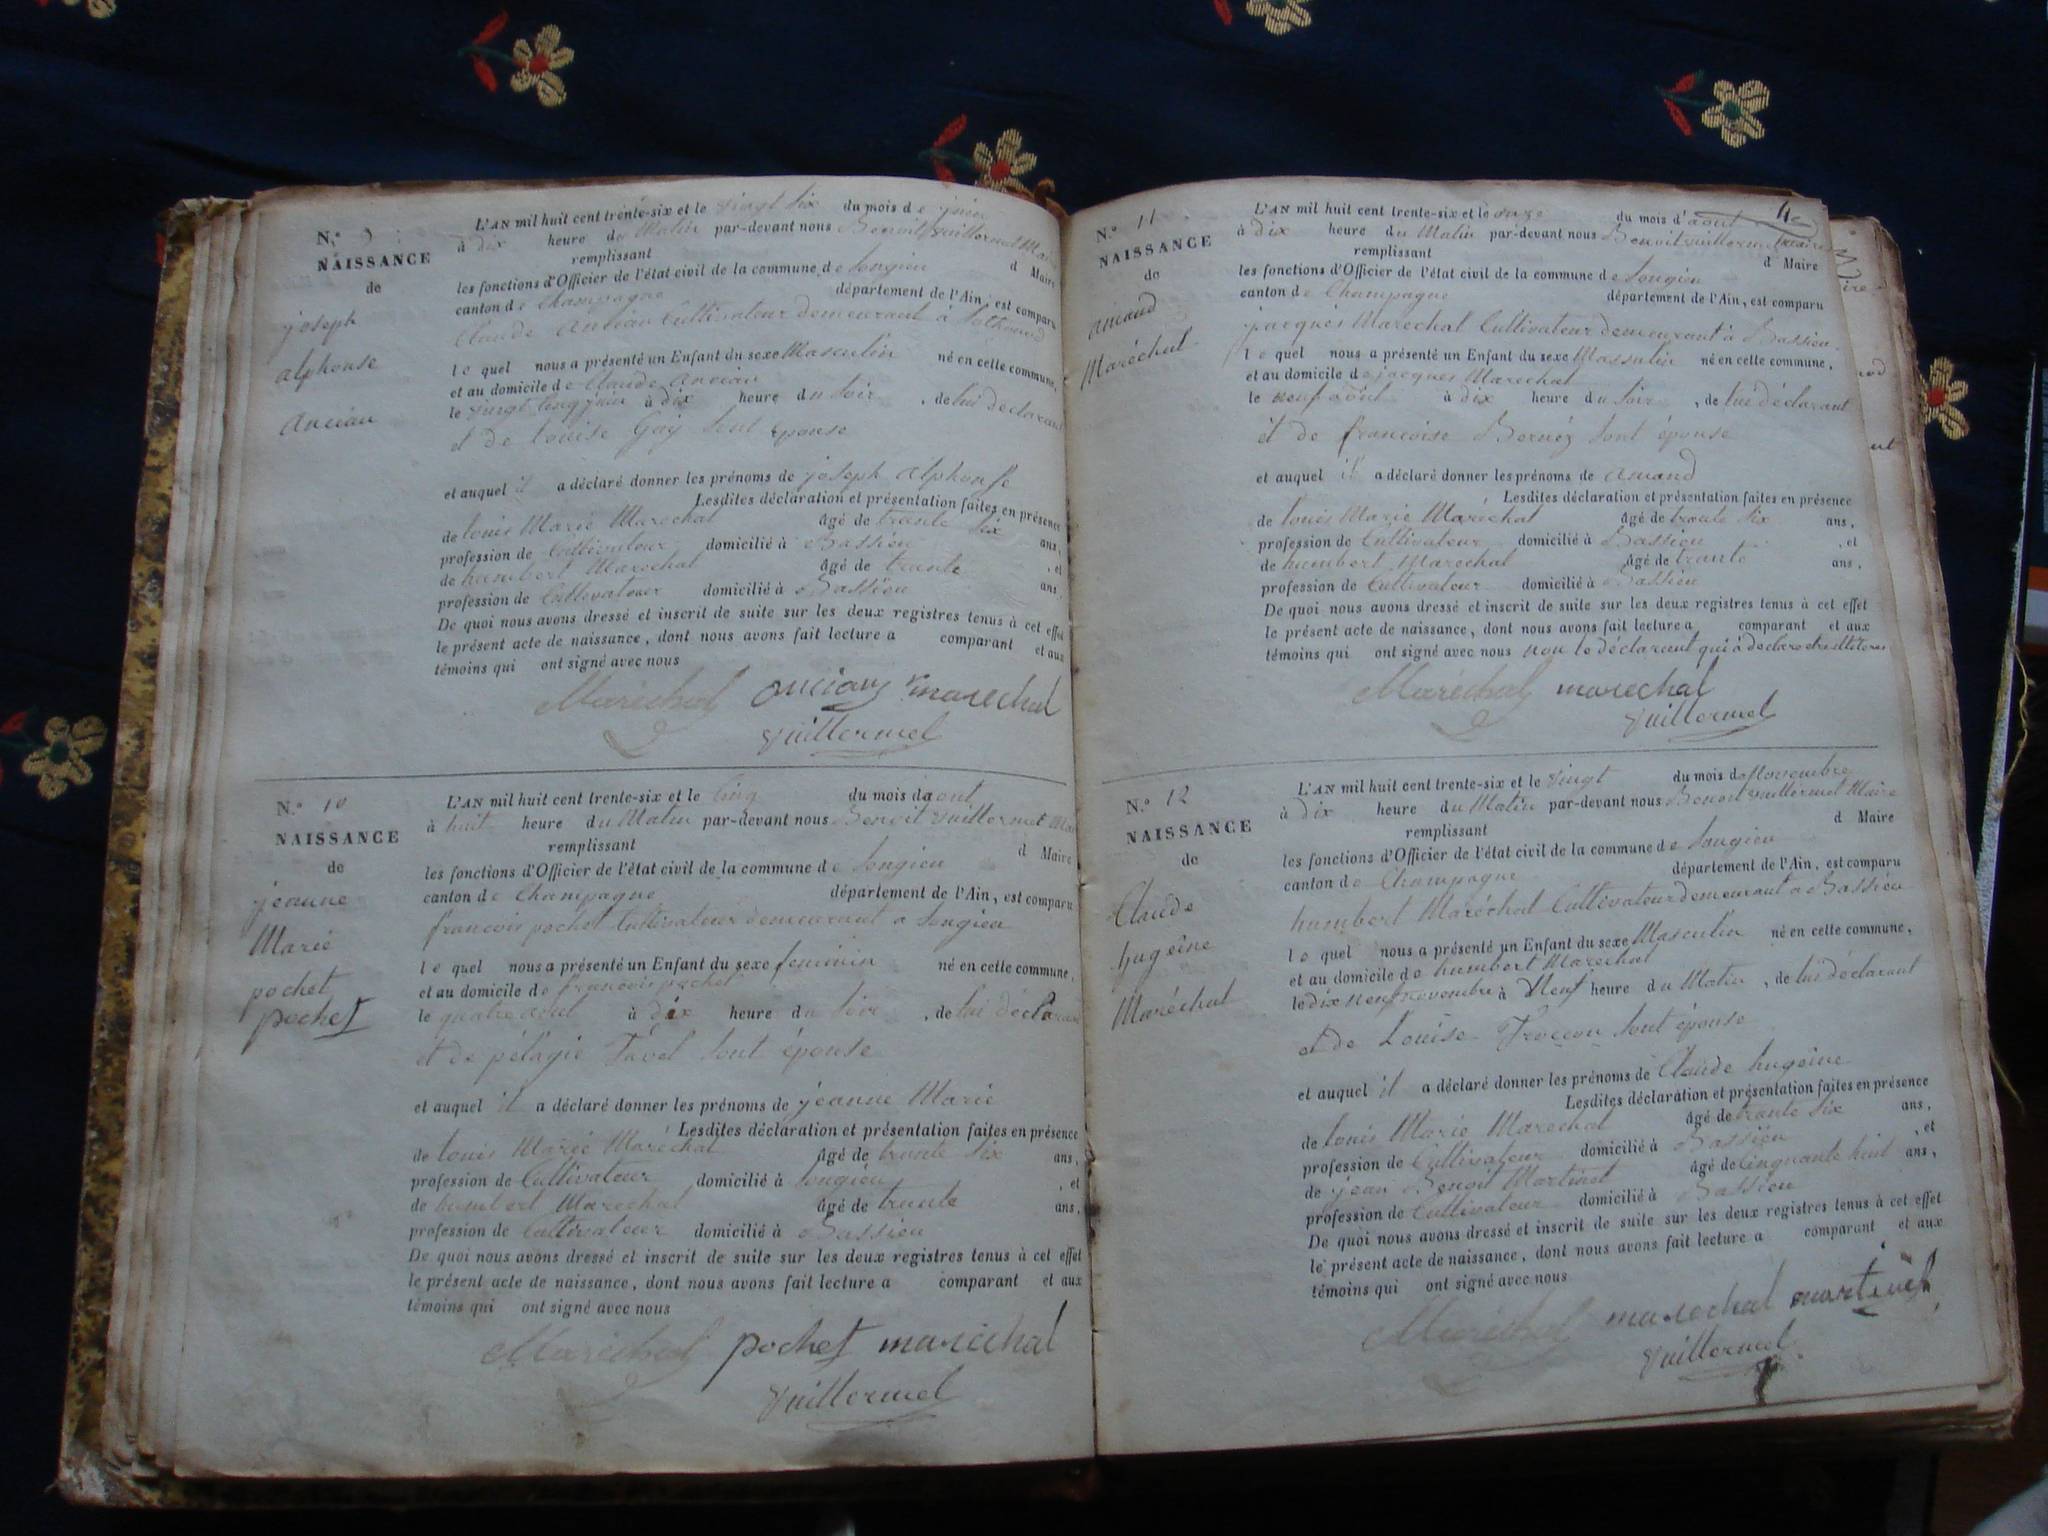 N.° 9
NAISSANCE
de
joseph
alphonse
anciau
L'AN mil huit cent trente-six et le vingt six du mois de juin
à dix heure du Matin par-devant nous Benoit Guillermet Maire
remplissant d Maire
les fonctions d'Officier de l'état civil de la commune de Songieu
canton de Champagne département de l'Ain, est comparu
Claude anciau Cultivateur demeurant à
le quel nous a présenté un Enfant du sexe Masculin né en cette commune,
et au domicile de Claude anciau
le vingt cinq juin à dix heure du Soir, de lui déclarant
et de Louise Goy sont épouse
et auquel il a déclaré donner les prénoms de joseph alphonse
Lesdites déclaration et présentation faites en présence
de louis Marie Marechal âgé de trante six ans,
profession de Cultivateur domicilié à Bassieu, et
de humbert Marechal âgé de trante ans,
profession de Cultivateur domicilié à Bassieu
De quoi nous avons dressé et inscrit de suite sur les deux registres tenus à cet effet
le présent acte de naissance, dont nous avons fait lecture a comparant et aux
témoins qui ont signé avec nous
Maréchal anciau marechal
guillermet
N.° 10
NAISSANCE
de
jeanne
Marie
pochet
pochet
L'AN mil huit cent trente-six et le cinq du mois daout
à huit heure du Matin par-devant nous Benoit Guillermet Mai
remplissant d Maire
les fonctions d'Officier de l'état civil de la commune de Songieu
canton de Champagne département de l'Ain, est comparu
francois pochet Cultivateur demeurant a Songieu
le quel nous a présenté un Enfant du sexe feminin né en cette commune,
et au domicile de francois pochet
le quatre aout à dix heure du Soir, de lui déclarant
et de pélagie Tavel sont épouse
et auquel il a déclaré donner les prénoms de jeanne Marie
Lesdites déclaration et présentation faites en présence
de louis Marie Maréchal âgé de trante six ans,
profession de Cultivateur domicilié à Songieu, et
de humbert Marechal âgé de trante ans,
profession de Cultivateur domicilié à Bassieu
De quoi nous avons dressé et inscrit de suite sur les deux registres tenus à cet effet
le présent acte de naissance, dont nous avons fait lecture a comparant et aux
témoins qui ont signé avec nous
Maréchal pochet marechal
guillermet
N.° 11
NAISSANCE
de
amand
Maréchal
L'AN mil huit cent trente-six et le onze du mois d'aout
à dix heure du Matin par-devant nous Benoit Guillermet Maire
remplissant d Maire
les fonctions d'Officier de l'état civil de la commune de Songieu
canton de Champagne département de l'Ain, est comparu
jacques Marechal Cultivateur demeurant à Bassieu
le quel nous a présenté un Enfant du sexe Massulin né en cette commune,
et au domicile de jacques Marechal
le neuf aout à dix heure du Soir, de lui déclarant
et de francoise Bernéz sont épouse
et auquel il a déclaré donner les prénoms de amand
Lesdites déclaration et présentation faites en présence
de louis Marie Maréchal âgé de trante six ans,
profession de Cultivateur domicilié à Bassieu, et
de humbert Marechal âgé de trante ans,
profession de Cultivateur domicilié à Bassieu
De quoi nous avons dressé et inscrit de suite sur les deux registres tenus à cet effet
le présent acte de naissance, dont nous avons fait lecture a comparant et aux
témoins qui ont signé avec nous non le déclarant qui à déclare etre
Maréchal marechal
guillermet
N.° 12
NAISSANCE
de
Claude
hugeine
Maréchal
L'AN mil huit cent trente-six et le vingt du mois de Novembre
à dix heure du Matin par-devant nous Benoit Guillermet Maire
remplissant d Maire
les fonctions d'Officier de l'état civil de la commune de Songieu
canton de Champagne département de l'Ain, est comparu
humbert Maréchal Cultivateur demeurant a Bassieu
le quel nous a présenté un Enfant du sexe Masculin né en cette commune,
et au domicile de humbert Marechal
le dix neuf novembre à Neuf heure du Matin, de lui déclarant
et de Louise sont épouse
et auquel il a déclaré donner les prénoms de Claude hugeine
Lesdites déclaration et présentation faites en présence
de louis Marie Marechal âgé de trante six ans,
profession de Cultivateur domicilié à Bassieu, et
de jean Benoit Martinet âgé de cinquante huit ans,
profession de Cultivateur domicilié à Bassieu
De quoi nous avons dressé et inscrit de suite sur les deux registres tenus à cet effet
le présent acte de naissance, dont nous avons fait lecture a comparant et aux
témoins qui ont signé avec nous
Maréchal marechal martinet
guillermet